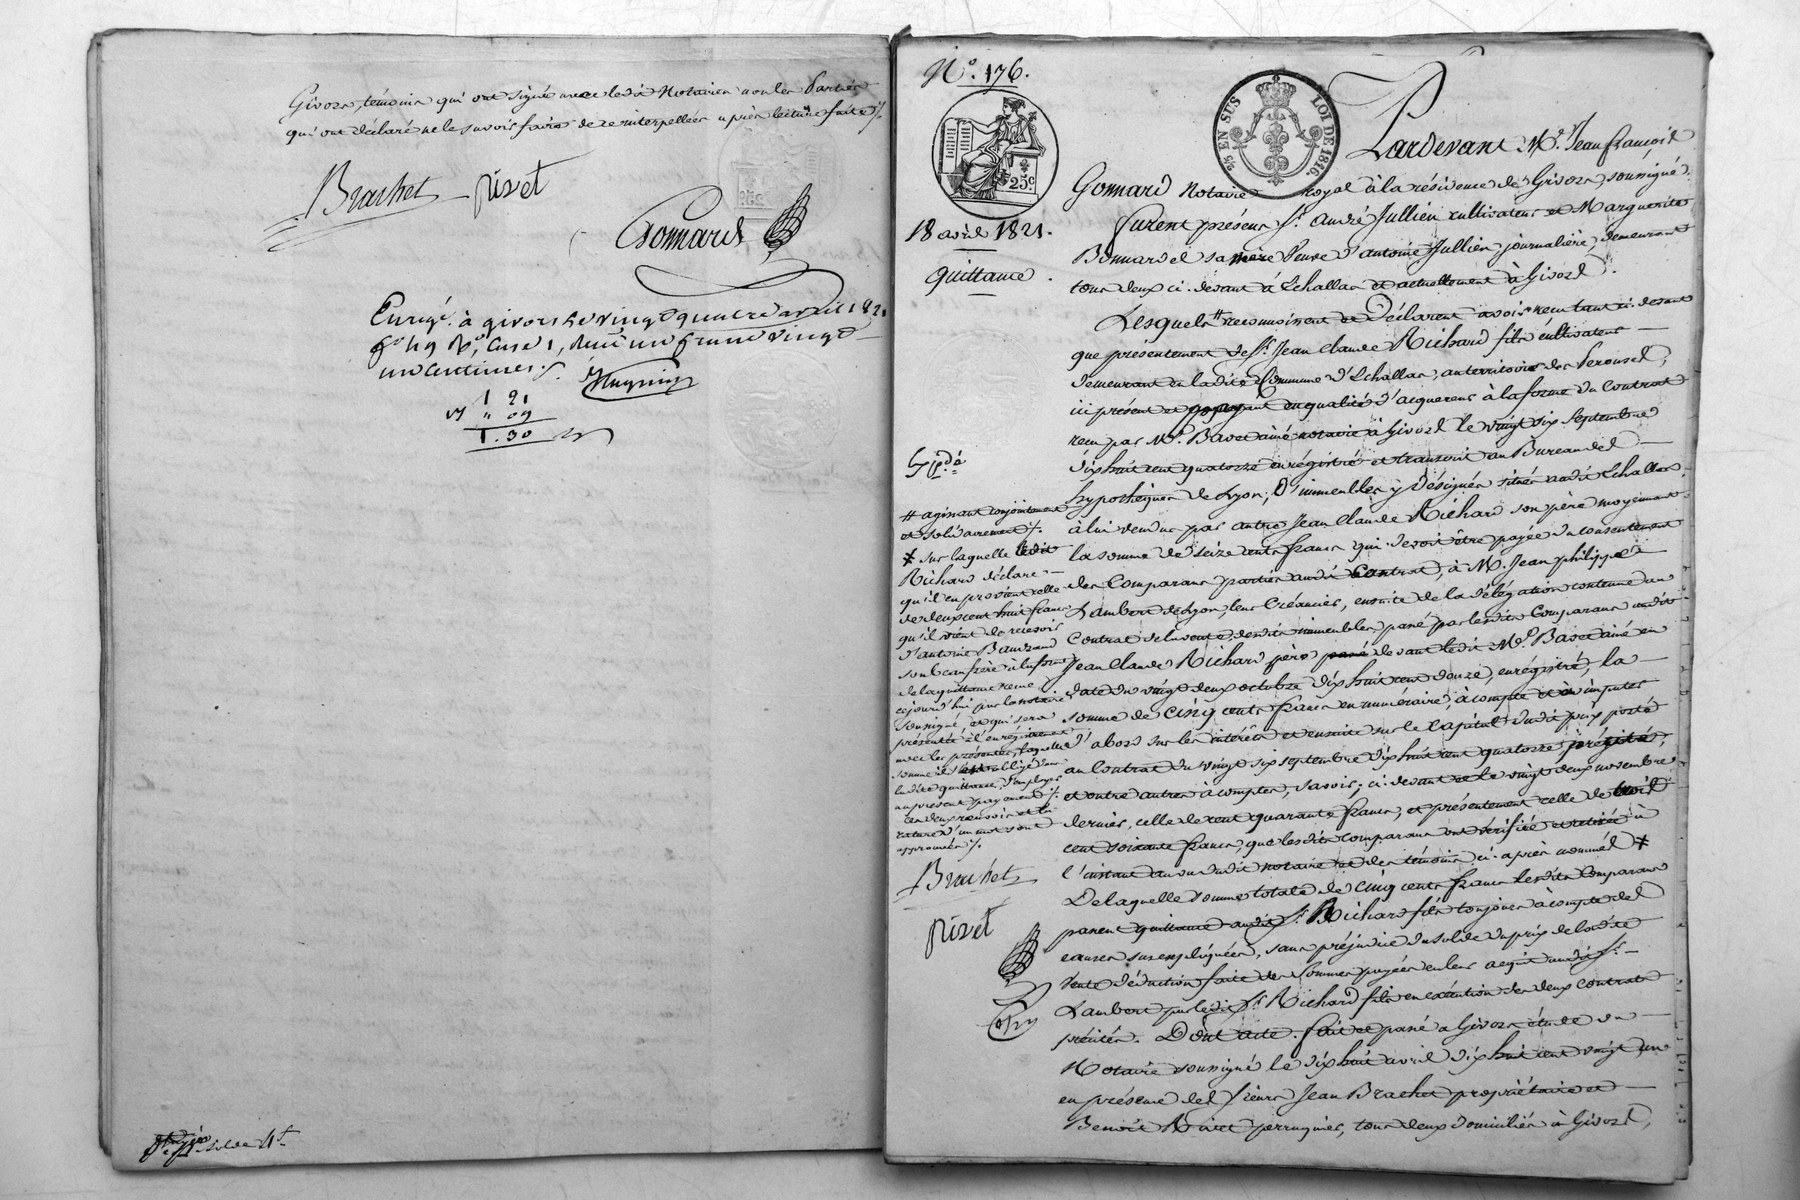 Givors, témoins qui ont signé avec ledit Notaire non les Parties
qui ont déclaré ne le savoir faire de ce interpellées après lecture faite ./.
Brachet rivet
Gonnard
Enregé. à givors le vingt quatre avril 1821
fo 49 Ro, Case 1, reçu un franc vingt
un centimes ./.
1 21
" 09
1.30
No. 176.
25c
25c EN SUS LOI DE 1816.
18 avril 1821.
Quittance
Pardevant Me. Jean François
Gonnard Notaire royal à la résidence de Givors, soussigné.
furent présens Sr. andré Jullien cultivateur et Marguerite
Bonnardel sa mère Veuve d'antoine Jullien, journalière, demeurant
tous deux ci-devant à Echallas et actuellement à Givors
Lesquels # reconnoissent et Déclarent avoir reçu tant ci-devant
que présentement de Sr. Jean Claude Richard fils cultivateur
demeurant en ladite Commune d'Echallas, au territoire des
ici présent et en qualité d'acquereur à la forme du contrat
reçu par Me. Basset aîné notaire à Givors le vingt six septembre
dix huit cent quatorze enrégistré et transcrit au Bureau des
hypothèques de Lyon; D'immeubles y désignés situés audit Echallas,
à lui vendus par autre Jean Claude Richard son père moyennant
la somme de seize cents francs qui devoit être payée du consentement
des Comparans parties audit Contrat, à M. Jean philippe
Lambert de Lyon, leur Créancier, ensuite de la délégation contenue au
Contrat de la vente desdits immeubles passé par lesdits Comparans audit
Jean Claude Richard père devant ledit Me. Basset aîné en
date du vingt deux octobre dix huit cent douze, enrégistré, la
somme de cinq cents francs en numéraire, à compte et à imputer
d'abord sur les intérêts et ensuite sur le capital dudit prix porté
au Contrat du vingt six septembre dix huit cent quatorze précité,
et outre autres à comptes, savoir; ci-devant et le vingt deux novembre
dernier, celle de cent quarante francs, et présentement celle de trois
cent soixante francs, que lesdits comparans ont vérifié et retirée à
l'instant au vu dudit notaire et des témoins ci-après nommés *
De laquelle somme totale de cinq cents francs lesdits Comparans
passent quittance audit Sr. Richard fils toujours à compte des
causes sus expliquées, sans préjudice du solde du prix de ladite
Vente déduction faite des Sommes payées en leur acquit audit Sr.
Lambert par ledit Sr. Richard fils en exécution des deux contrats
précités. Dont acte. fait et passé à Givors étude du
Notaire soussigné le dix huit avril dix huit cent vingt un
en présence des sieurs Jean Brachet propriétaire et
Benoît Rivet perruquier, tous deux domiciliés à Givors,
# agissant conjointement
et solidairement ./.
* sur laquelle ledit
Richard déclare
qu'il en provient celle
de deux cent huit francs
qu'il vient de recevoir
d'antoine
son beau frère à la forme
de la quittance reçue
cejourd'hui par le notaire
soussigné et qui sera
présentée à l'enrégistrement
avec les présentes, laquelle
somme il s'est obligé dans
ladite quittance, d'employer
au présent payement ./.
ces deux renvois et la
rature d'un mot sont
approuvés ./.
Brachet
rivet